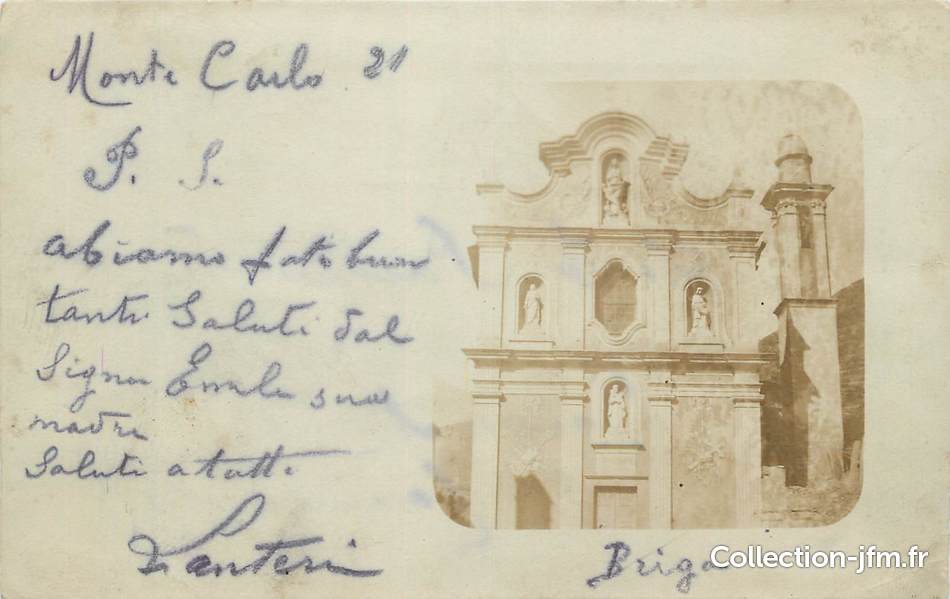 Monte Carlo 21
P. S.
abiamo fato buon
tanti Saluti dal
Signor Emile sua
madre
Saluti a tutti
Lanteri
Briga
Collection-jfm.fr